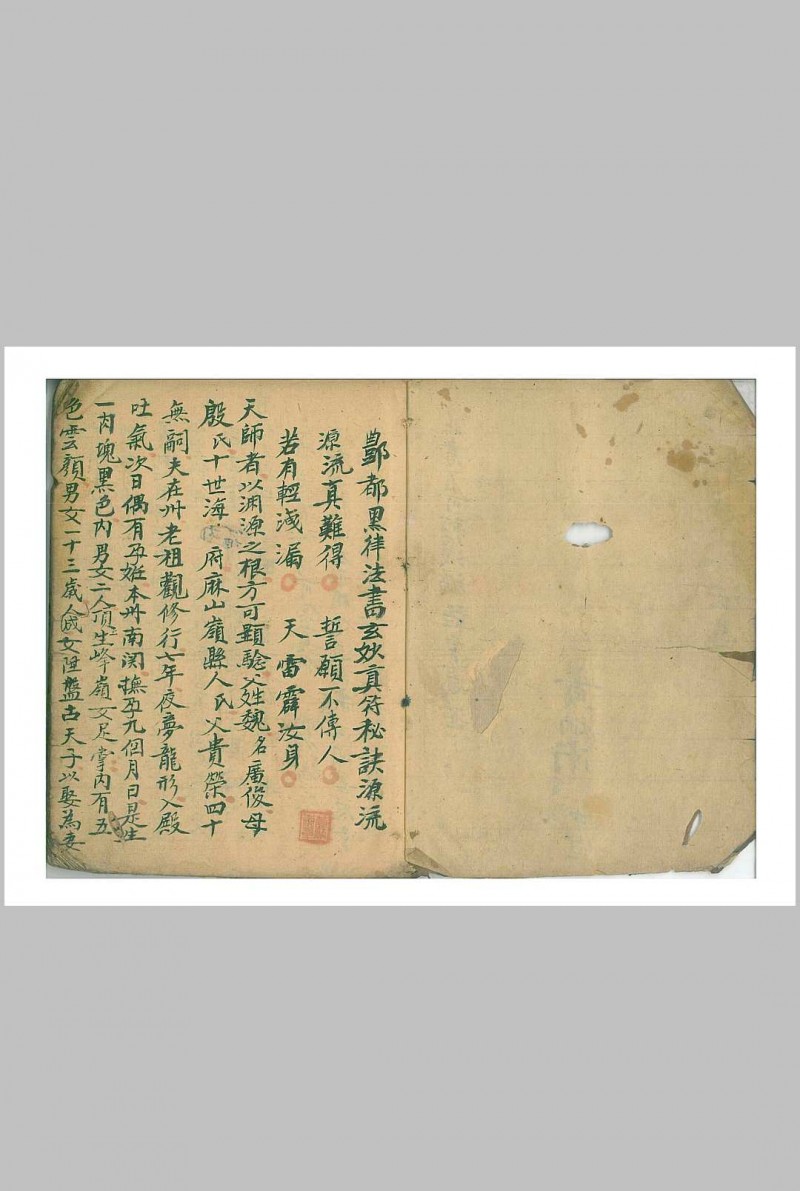 酆都黑律法書玄妙真符秘訣源流
源流真難得 誓願不傳人
若有輕洩漏 天雷霹汝身
天師者以渊源之根方可顯驗父姓魏名廣俊母
殷氏十世海府麻山嶺縣人氏父貴榮四十
無嗣夫在州老祖觀修行七年夜夢龍形入殿
吐氣次日偶有孕姙本州南関撫孕九個月日是生
一肉塊黑色内男女二人頂生峰嶺女足掌内有五
色雲顏男女一十三歲成女陞盤古天子以娶為妻